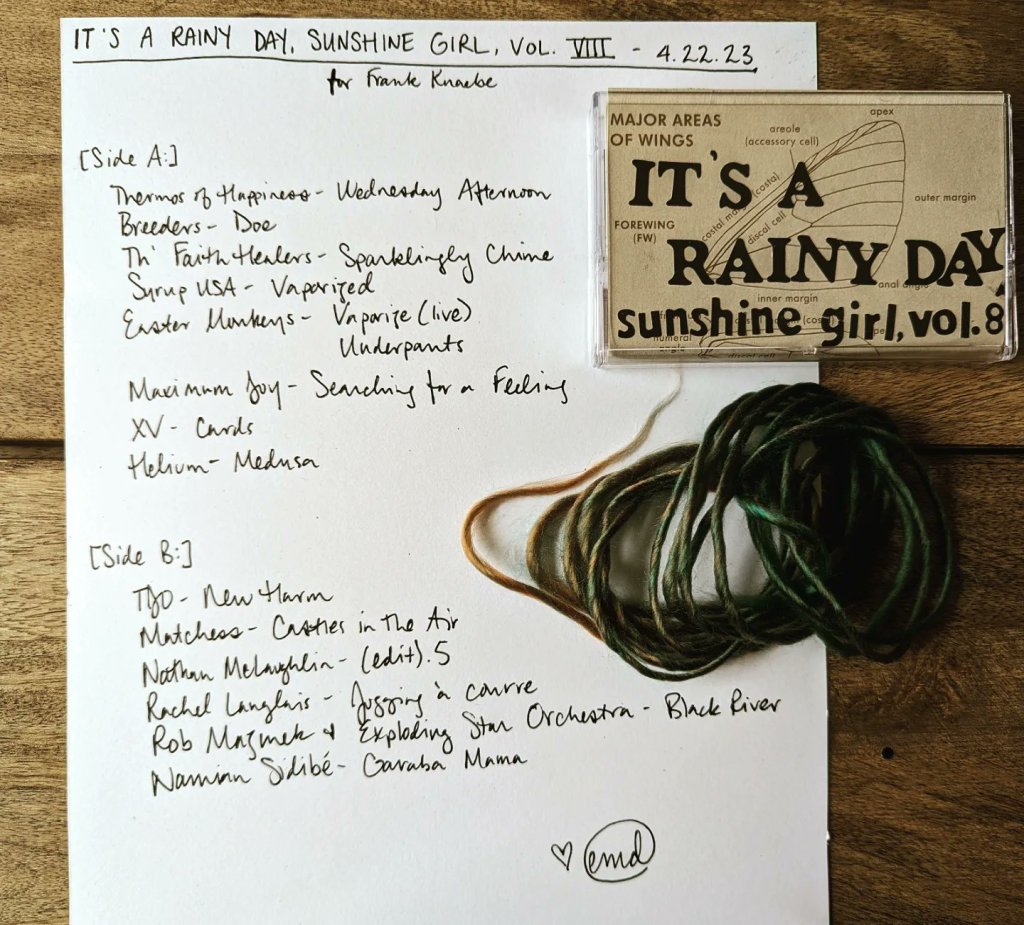 IT'S A RAINY DAY, SUNSHINE GIRL, VOL. VIII - 4.22.23
for Frank Knaebe
[Side A:]
Thermos of Happiness - Wednesday Afternoon
Breeders - Doe
Th' Faith Healers - Sparklingly Chime
Syrup USA - Vaporized
Easter Monkeys - Vaporize (live)
Underpants
Maximum Joy - Searching for a Feeling
XV - Cards
Helium - Medusa
[Side B:]
New Harm
Matchess - Castles in the Air
Nathan McLaughlin - (edit).5
Rachel Langlais - Jogging à courre
Rob Mazurek + Exploding Star Orchestra - Black River
Namian Sidibé - Garaba Mama
♡ emd
MAJOR AREAS
OF WINGS
apex
areole
(accessory cell)
IT'S A
costal margin (costa)
discal cell
outer margin
FOREWING
(FW)
RAINY DAY,
anal angle
inner margin
sunshine girl, vol. 8
humeral
angle
discal cell